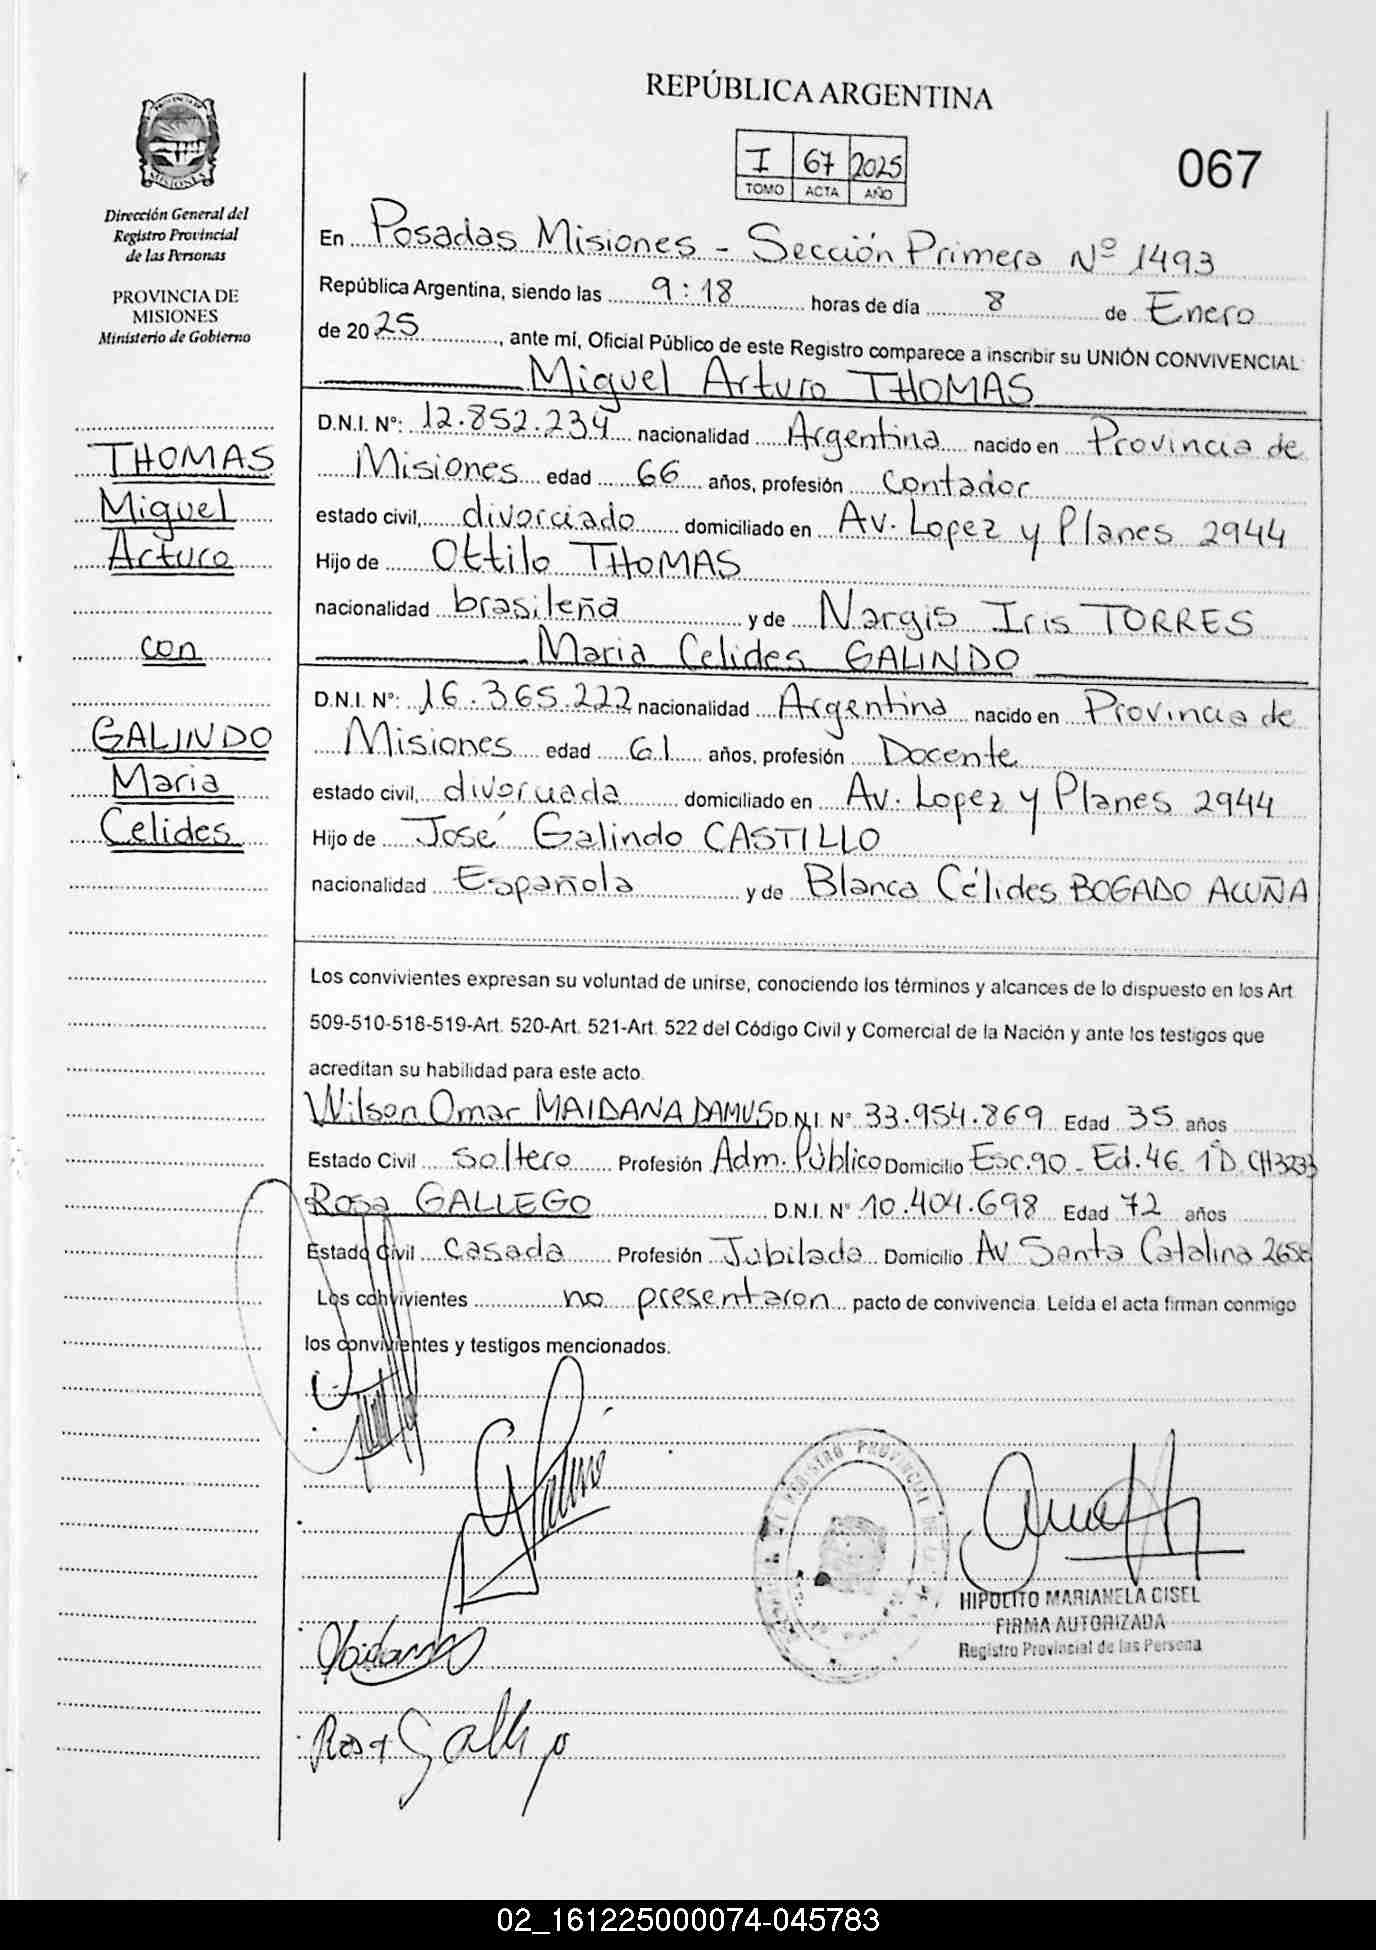 REPÚBLICA ARGENTINA
I 67 2025
TOMO ACTA AÑO
067
PROVINCIA DE
MISIONES
Dirección General del
Registro Provincial
de las Personas
PROVINCIA DE
MISIONES
Ministerio de Gobierno
THOMAS
Miguel
Arturo
con
GALINDO
Maria
Celides
En Posadas Misiones - Sección Primera Nº 1493
República Argentina, siendo las 9:18 horas de día 8 de Enero
de 2025, ante mí, Oficial Público de este Registro comparece a inscribir su UNIÓN CONVIVENCIAL
Miguel Arturo THOMAS
D.N.I. Nº: 12.852.234 nacionalidad Argentina nacido en Provincia de
Misiones edad 66 años, profesión Contador
estado civil, divorciado domiciliado en Av. Lopez y Planes 2944
Hijo de Ottilo THOMAS
nacionalidad brasileña y de Nargis Iris TORRES
Maria Celides GALINDO
D.N.I. Nº: 16.365.222 nacionalidad Argentina nacido en Provincia de
Misiones edad 61 años, profesión Docente
estado civil, divorciada domiciliado en Av. Lopez y Planes 2944
Hijo de José Galindo CASTILLO
nacionalidad Española y de Blanca Célides BOGADO ACUÑA
Los convivientes expresan su voluntad de unirse, conociendo los términos y alcances de lo dispuesto en los Art.
509-510-518-519-Art. 520-Art. 521-Art. 522 del Código Civil y Comercial de la Nación y ante los testigos que
acreditan su habilidad para este acto.
Wilson Omar MAIDANA DAMUS D.N.I. Nº 33.954.869 Edad 35 años
Estado Civil soltero Profesión Adm. Público Domicilio Esc.90 - Ed.46 1ºD CH3233
Rosa GALLEGO D.N.I. Nº 10.404.698 Edad 72 años
Estado Civil Casada Profesión Jubilada Domicilio Av Santa Catalina 2658
Los convivientes no presentaron pacto de convivencia. Leída el acta firman conmigo
los convivientes y testigos mencionados.
REGISTRO PROVINCIAL DE
HIPOLITO MARIANELA GISEL
FIRMA AUTORIZADA
Registro Provincial de las Persona
Rosa Gallego
02_161225000074-045783